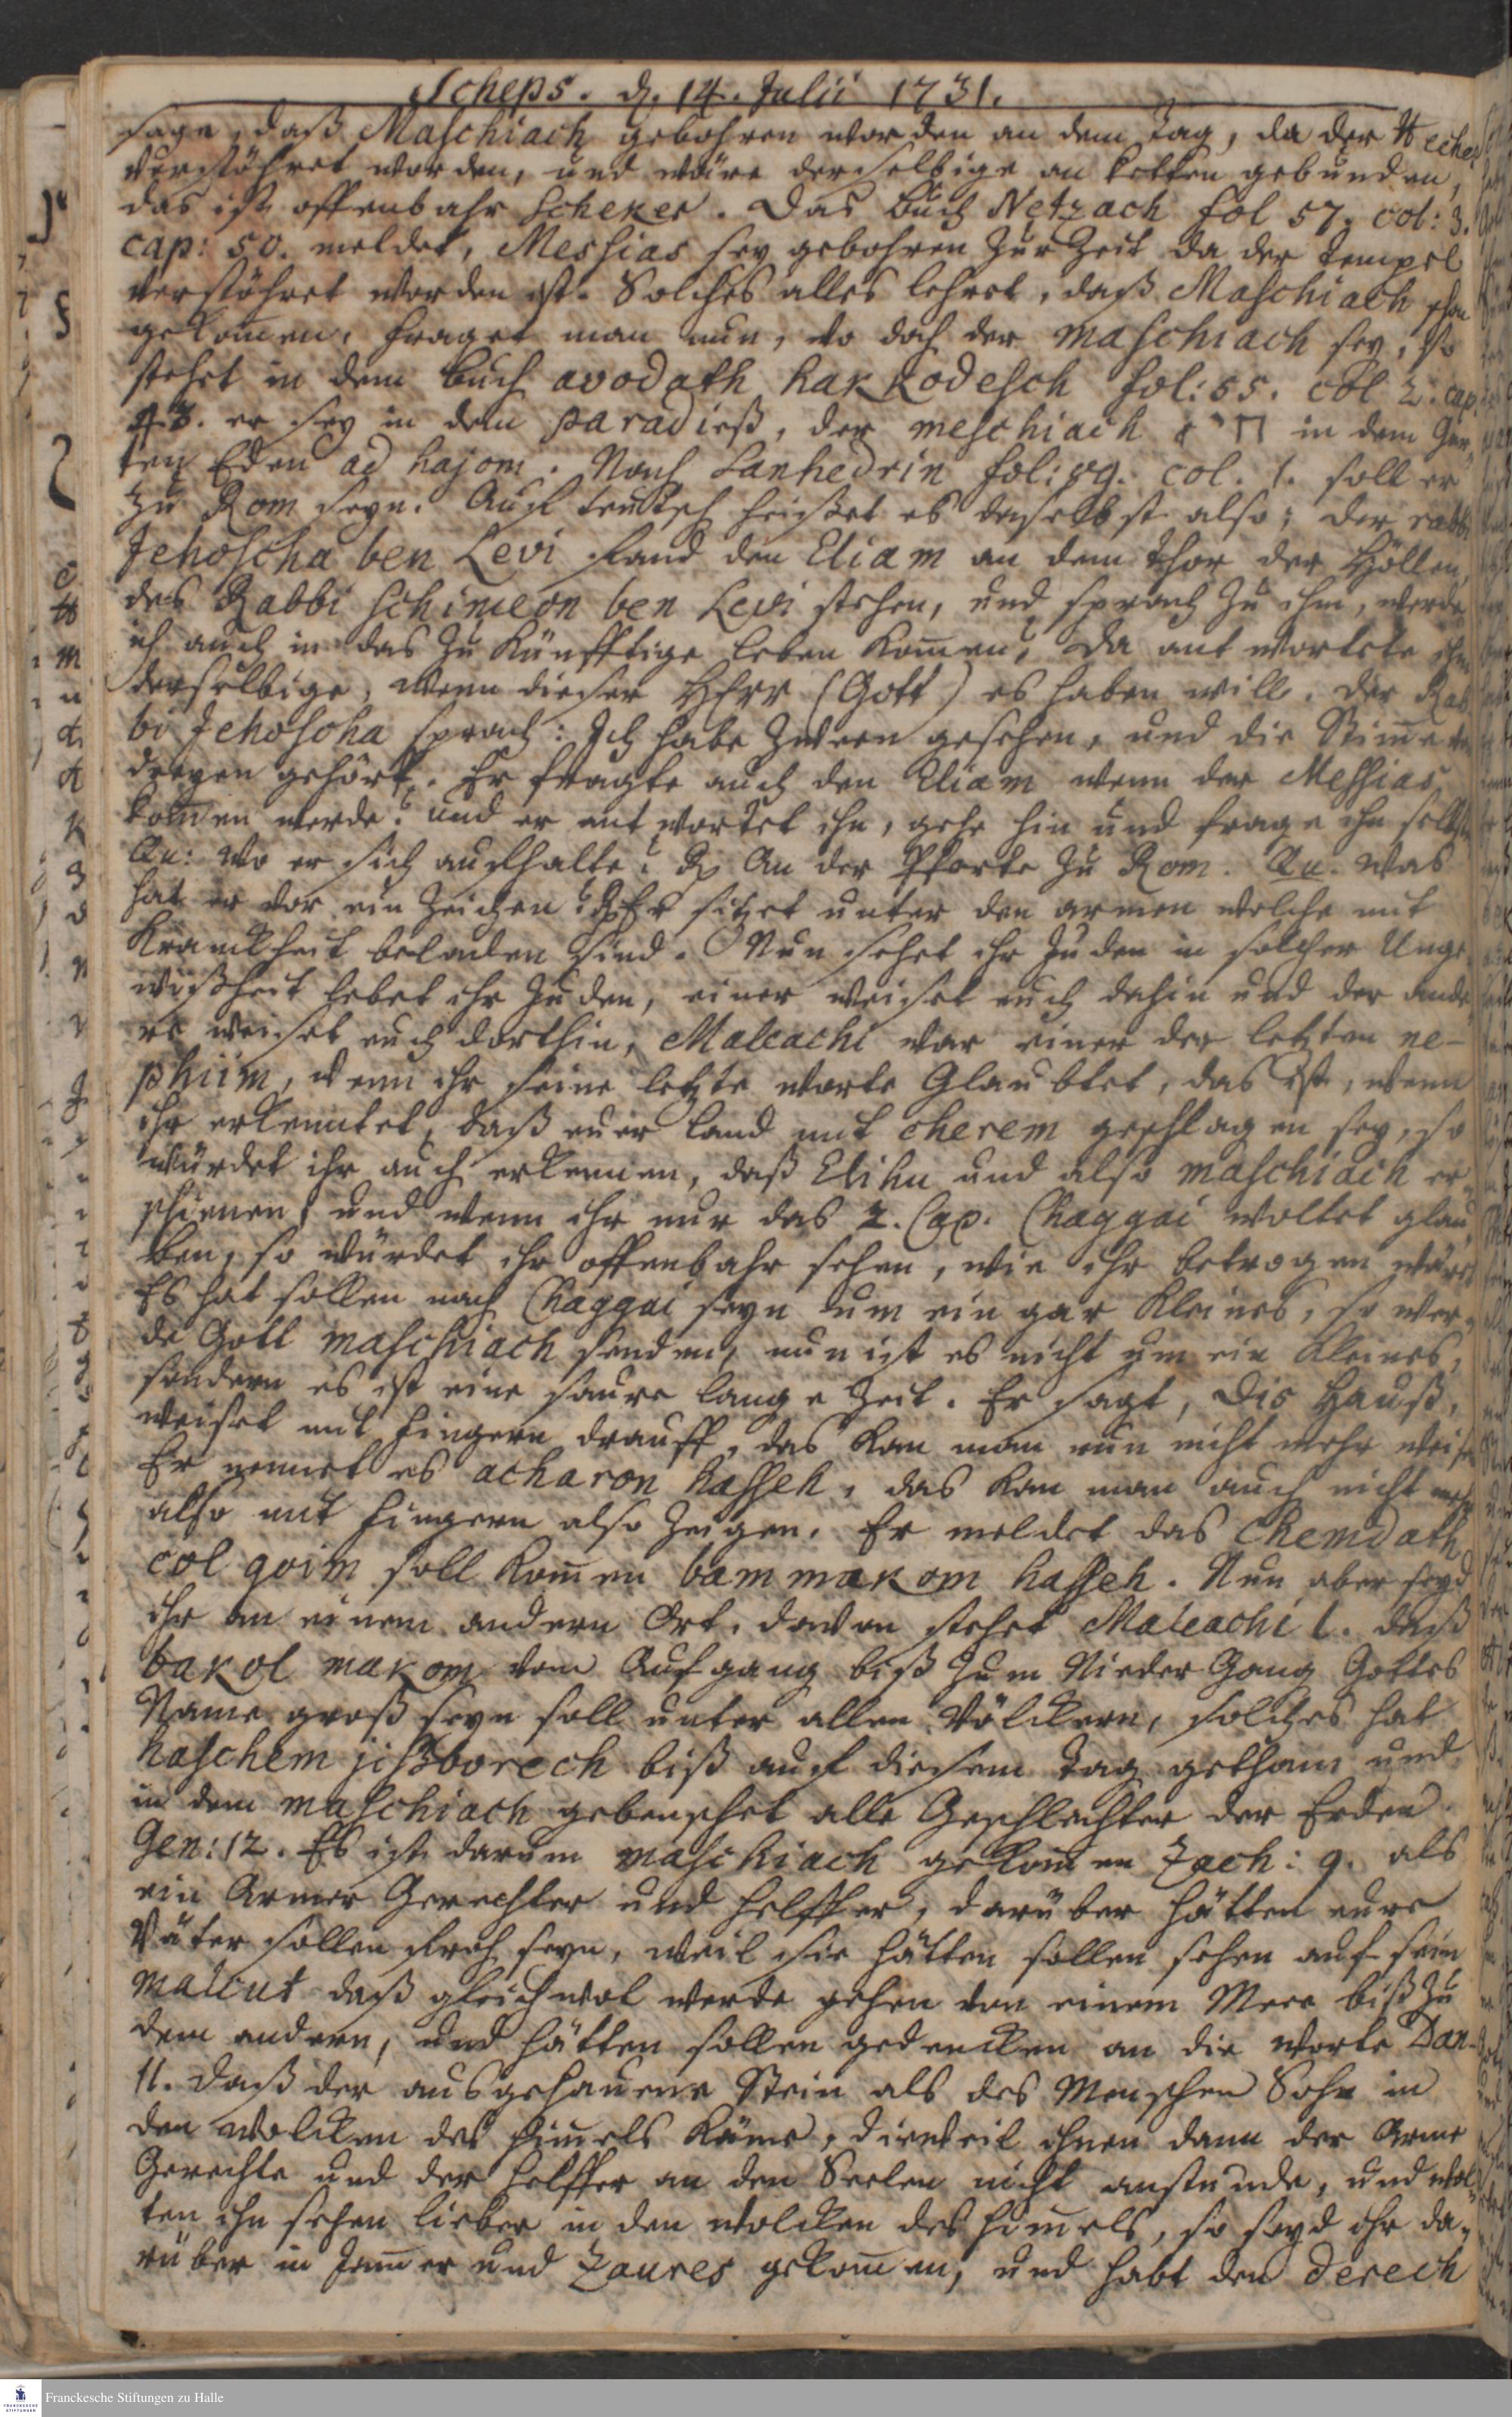 Scheps. d. 14. Julii 1731.
sage, daß Maschiach gebohren worden an dem Tag, da der Hechel
verstöhret worden, und wäre derselbige an ketten gebunden,
das ist offenbahr scheker. Das buch Netzach fol 57. col: 3.
cap: 50. meldet, Messias sey gebohren zur Zeit da der tempel
verstöhret worden ist. Solches alles lehret, daß Maschiach schon
gekommen, fraget man nun, wo doch der maschiach sey, so
stehet in dem buch avodath hakkodesch fol: 55. col 2. cap.
43. er sey in dem paradieß, der meschiach in dem Gar
ten Eden ad hajom. Nach Sanhedrin fol: 89. col. 1. soll er
zu Rom seyn. Auf teutsch heißet es daselbst also: der rabbi
Jehoscha ben Levi fand den Eliam an dem thor der Höllen
des Rabbi Schimeon ben Levi stehen, und sprach zu ihm, werde
ich auch in das zu Künfftige leben kommen? da antwortete ihm
derselbige, wenn dieser HErr (Gott) es haben will. der Rab
bi Jehoscha sprach: Ich habe zween gesehen, und die Stimme von
dreyen gehört. Er fragte auch den Eliam wenn der Messias
kommen werde? und er antwortet ihm, gehe hin und frage ihn selbst
Qu: wo er sich auffhalte? Rx An der Pforte zu Rom. Qu. was
hat er vor ein Zeichen? Rx Er sitzet unter den armen welche mit
Kranckheit beladen sind. Nun sehet ihr Juden in solcher Unge
wißheit lebet ihr Juden, einer weiset euch dahin und der ande
re weiset euch dorthin, Maleachi war einer der letzten ne-
phiim, wenn ihr seine letzte worte Glaubtet, das ist, wenn
ihr erkenntet, daß euer land mit cherem geschlagen sey, so
würdet ihr auch erkennen, daß Elihu und also maschiach er
schienen, und wenn ihr nur das 2. Cap. Chaggai woltet glau
ben, so würdet ihr offenbahr sehen, wie ihr betrogen wäret
Es hat sollen nach Chaggai seyn um ein gar kleines, so wer
de Gott maschiach senden, nun ist es nicht um ein kleines,
sondern es ist eine saure lange Zeit. Er sagt, Dis Hauß,
weiset mit fingern drauff, das kan man nun nicht mehr weisen
Er nennet es acharon hasseh, das kan man auch nicht mehr
also mit fingern also zeigen. Er meldet das Chemdath
col goim soll kommen bammakom hasseh. Nun aber seyd
ihr an einem andern Ort, davon stehet Maleachi 1. daß
bakol makom vom Aufgang biß zum Nieder Gang Gottes
Name groß seyn soll unter allen Völckern, solches hat
haschem jißborech biß auf diesem Tag gethan und
in dem maschiach gebenschet alle Geschlechter der Erden
Gen: 12. Es ist darum maschiach gekommen Zach: 9. als
ein Armer Gerechter und helffer, darüber hätten eure
Väter sollen froh seyn, weil sie hätten sollen sehen auf sein
malcut daß gleichwol werde gehen von einem Meer biß zu
dem andern, und hätten sollen gedencken an die worte Dan.
11. daß der ausgehauene Stein als des Menschen Sohn in
den wolcken des himmels käme, dieweil ihnen dann der Arme
Gerechte und der helffer an den Seelen nicht anstunde, und wol
ten ihn sehen lieber in den wolcken des himmels, so seyd ihr da
rüber in Jammer und Zaures gekommen, und habt den derech
Franckesche Stiftungen zu Halle